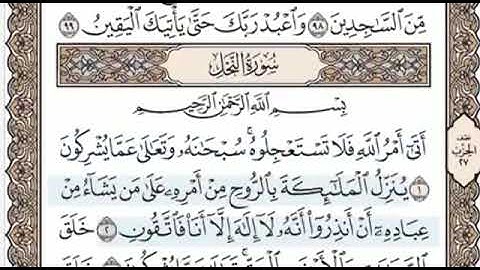 مِّنَ ٱلسَّـٰجِدِينَ ٩٨ وَٱعْبُدْ رَبَّكَ حَتَّىٰ يَأْتِيَكَ ٱلْيَقِينُ ٩٩
سُورَةُ النَّحْلِ
بِسْمِ ٱللَّهِ ٱلرَّحْمَـٰنِ ٱلرَّحِيمِ
أَتَىٰٓ أَمْرُ ٱللَّهِ فَلَا تَسْتَعْجِلُوهُ ۚ سُبْحَـٰنَهُۥ وَتَعَـٰلَىٰ عَمَّا يُشْرِكُونَ
١ يُنَزِّلُ ٱلْمَلَـٰٓئِكَةَ بِٱلرُّوحِ مِنْ أَمْرِهِۦ عَلَىٰ مَن يَشَآءُ مِنْ
عِبَادِهِۦٓ أَنْ أَنذِرُوٓا۟ أَنَّهُۥ لَآ إِلَـٰهَ إِلَّآ أَنَا۠ فَٱتَّقُونِ ٢ خَلَقَ
نصف
الحزب
٢٧